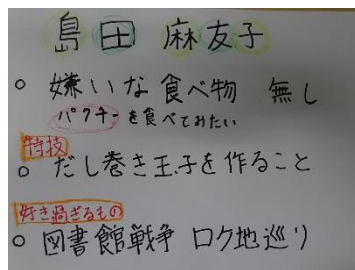 島田 麻友子
○ 嫌いな食べ物 無し
パクチーを食べてみたい
特技
○ だし巻き玉子を作ること
好き過ぎるもの
○ 図書館戦争 ロケ地巡り